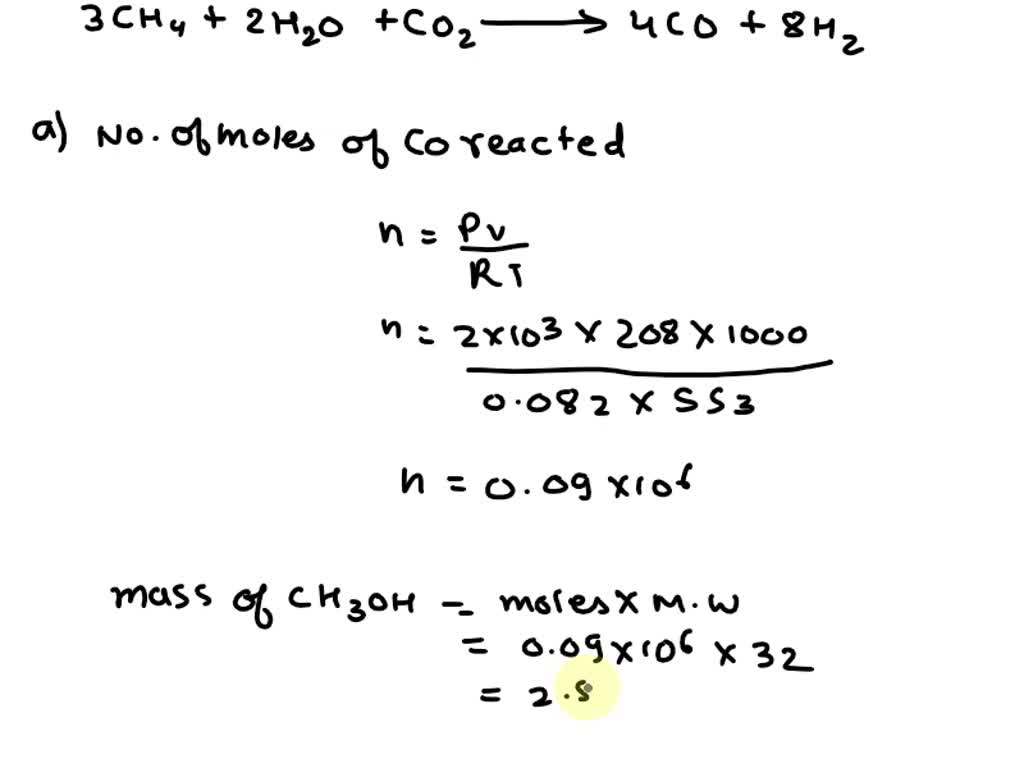 3CH4 + 2H2O + CO2 ⟶ 4CO + 8H2
a) No. of moles of Co reacted
n = Pv/RT
n = 2×10³ × 208 × 1000 / 0.082 × 553
n = 0.09 ×10⁶
mass of CH3OH = moles × M.W
= 0.09×10⁶ × 32
= 2.8